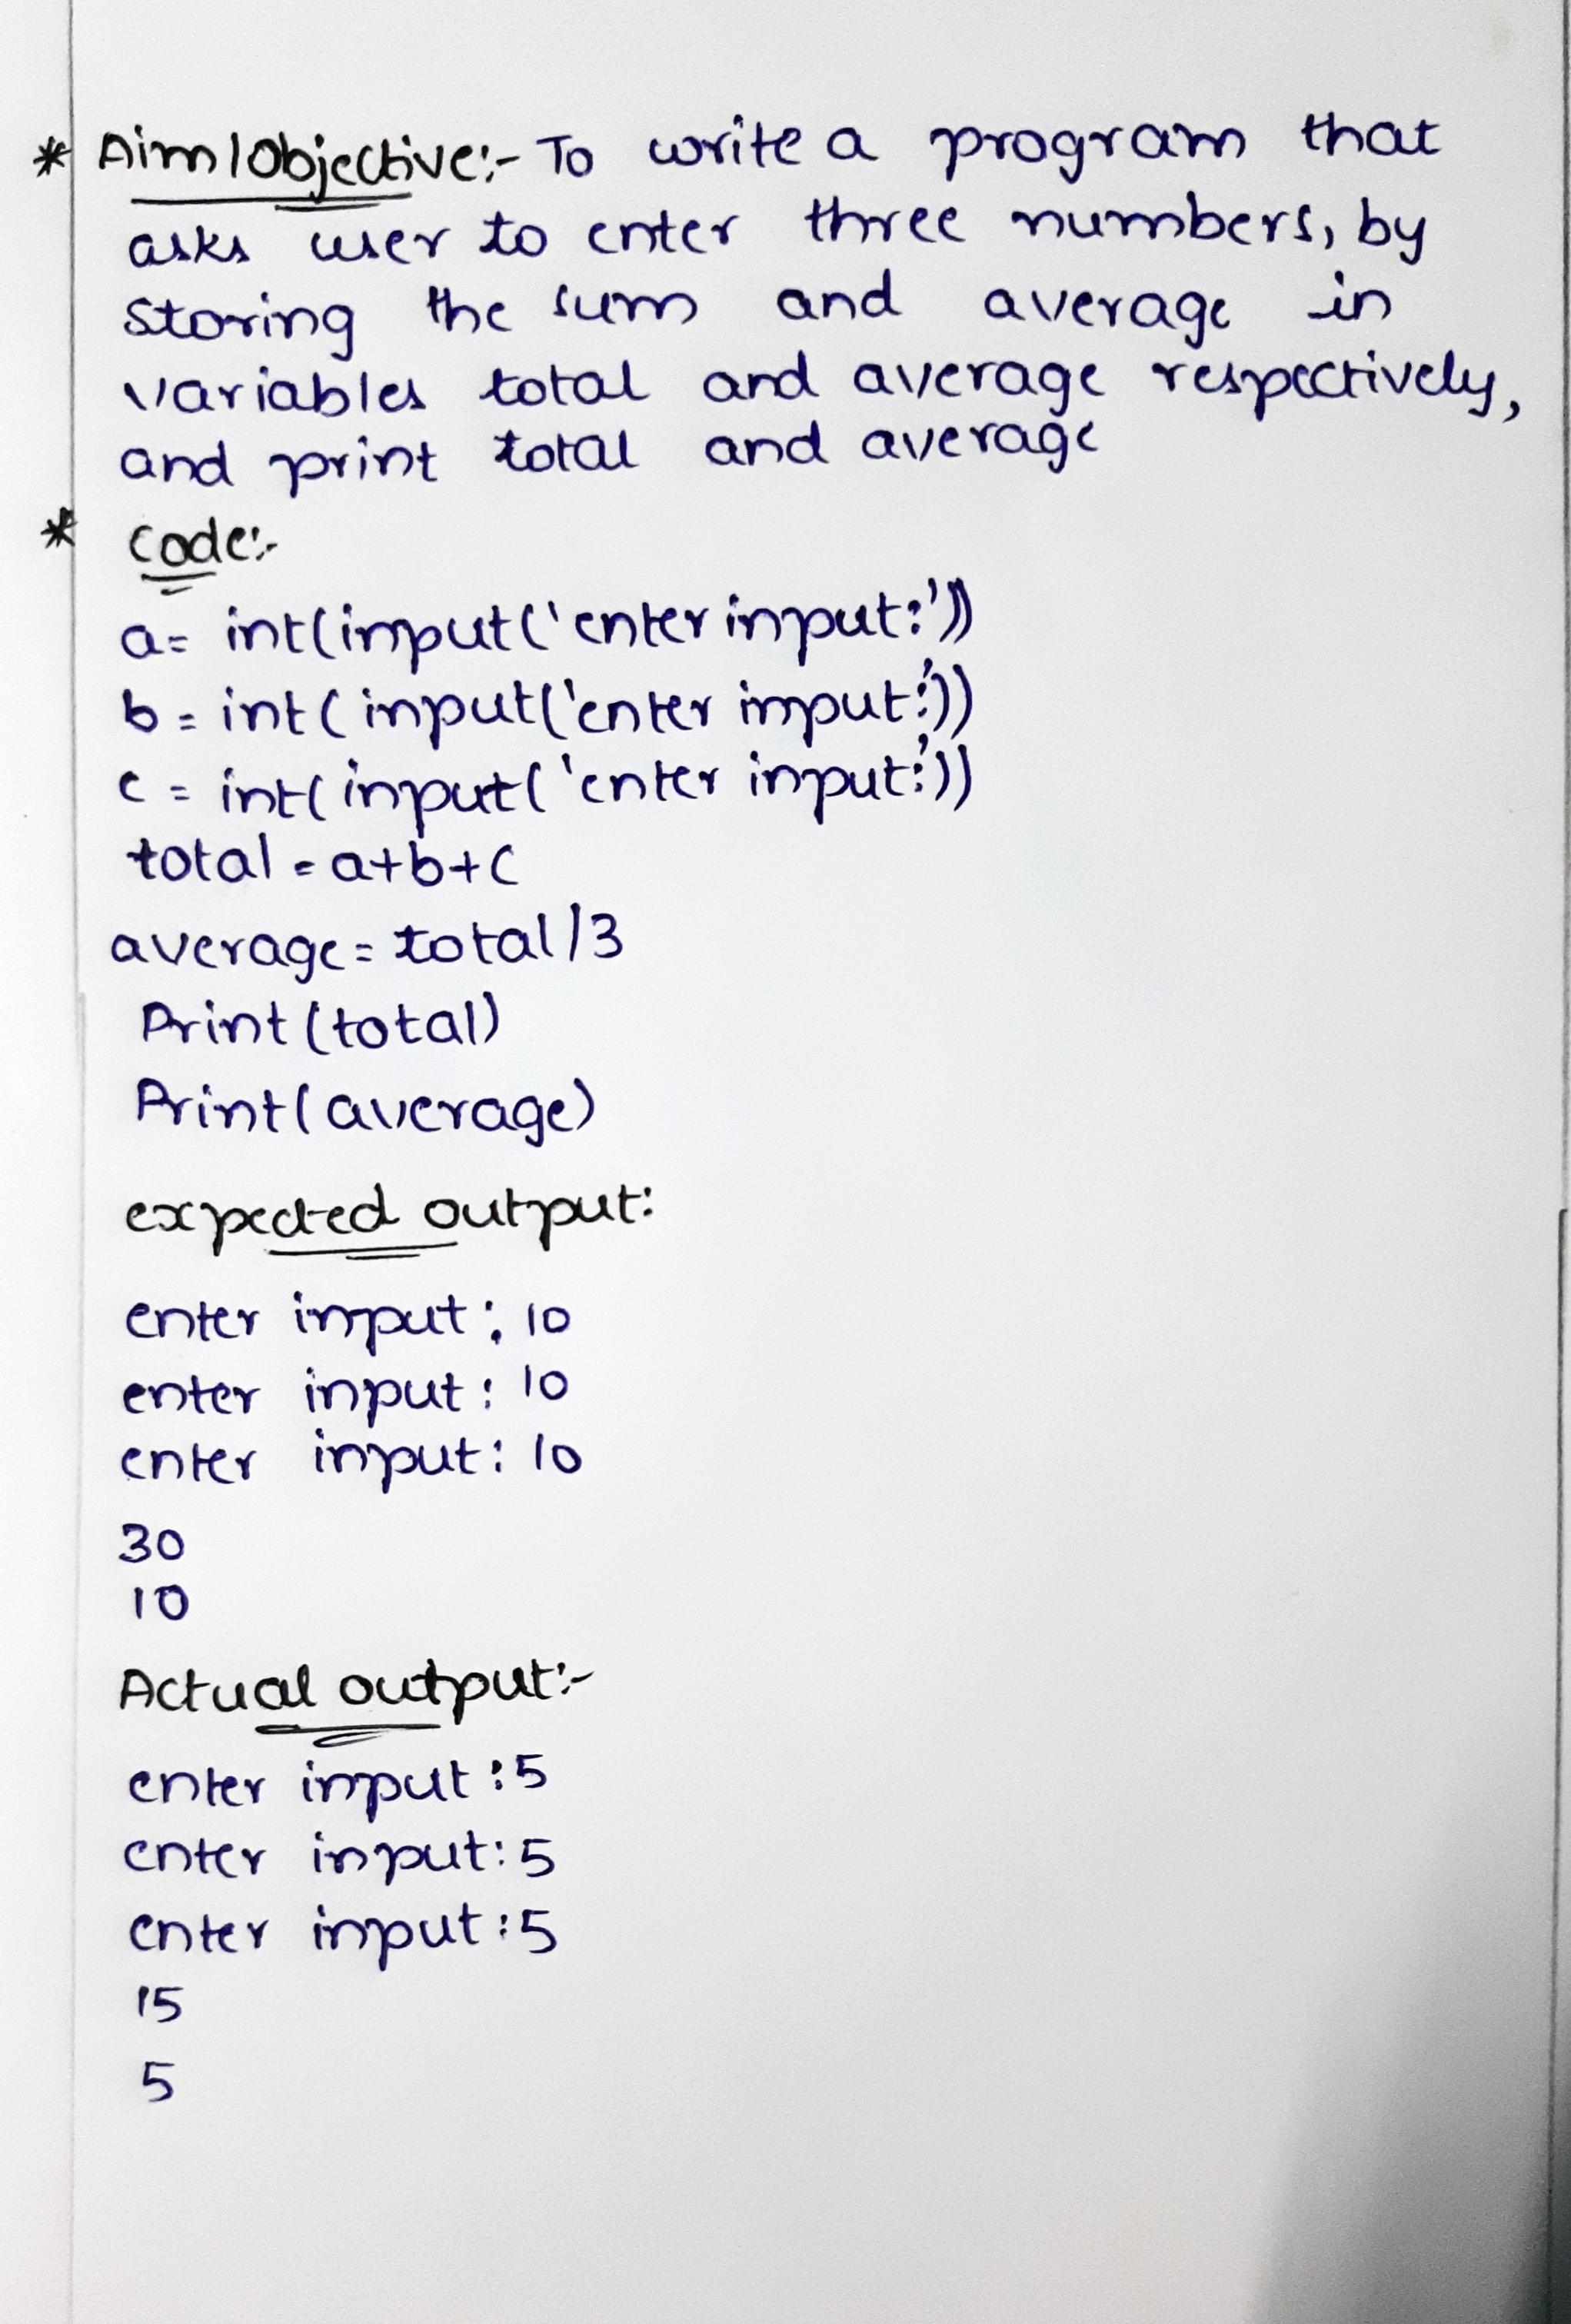 * Aim/Objective:- To write a program that
asks user to enter three numbers, by
storing the sum and average in
variables total and average respectively,
and print total and average
* Code:-
a= int(input('enter input:'))
b = int(input('enter input:'))
c = int(input('enter input:'))
total = a+b+c
average = total/3
Print(total)
Print(average)
expected output:
enter input: 10
enter input: 10
enter input: 10
30
10
Actual output:-
enter input:5
enter input:5
enter input:5
15
5